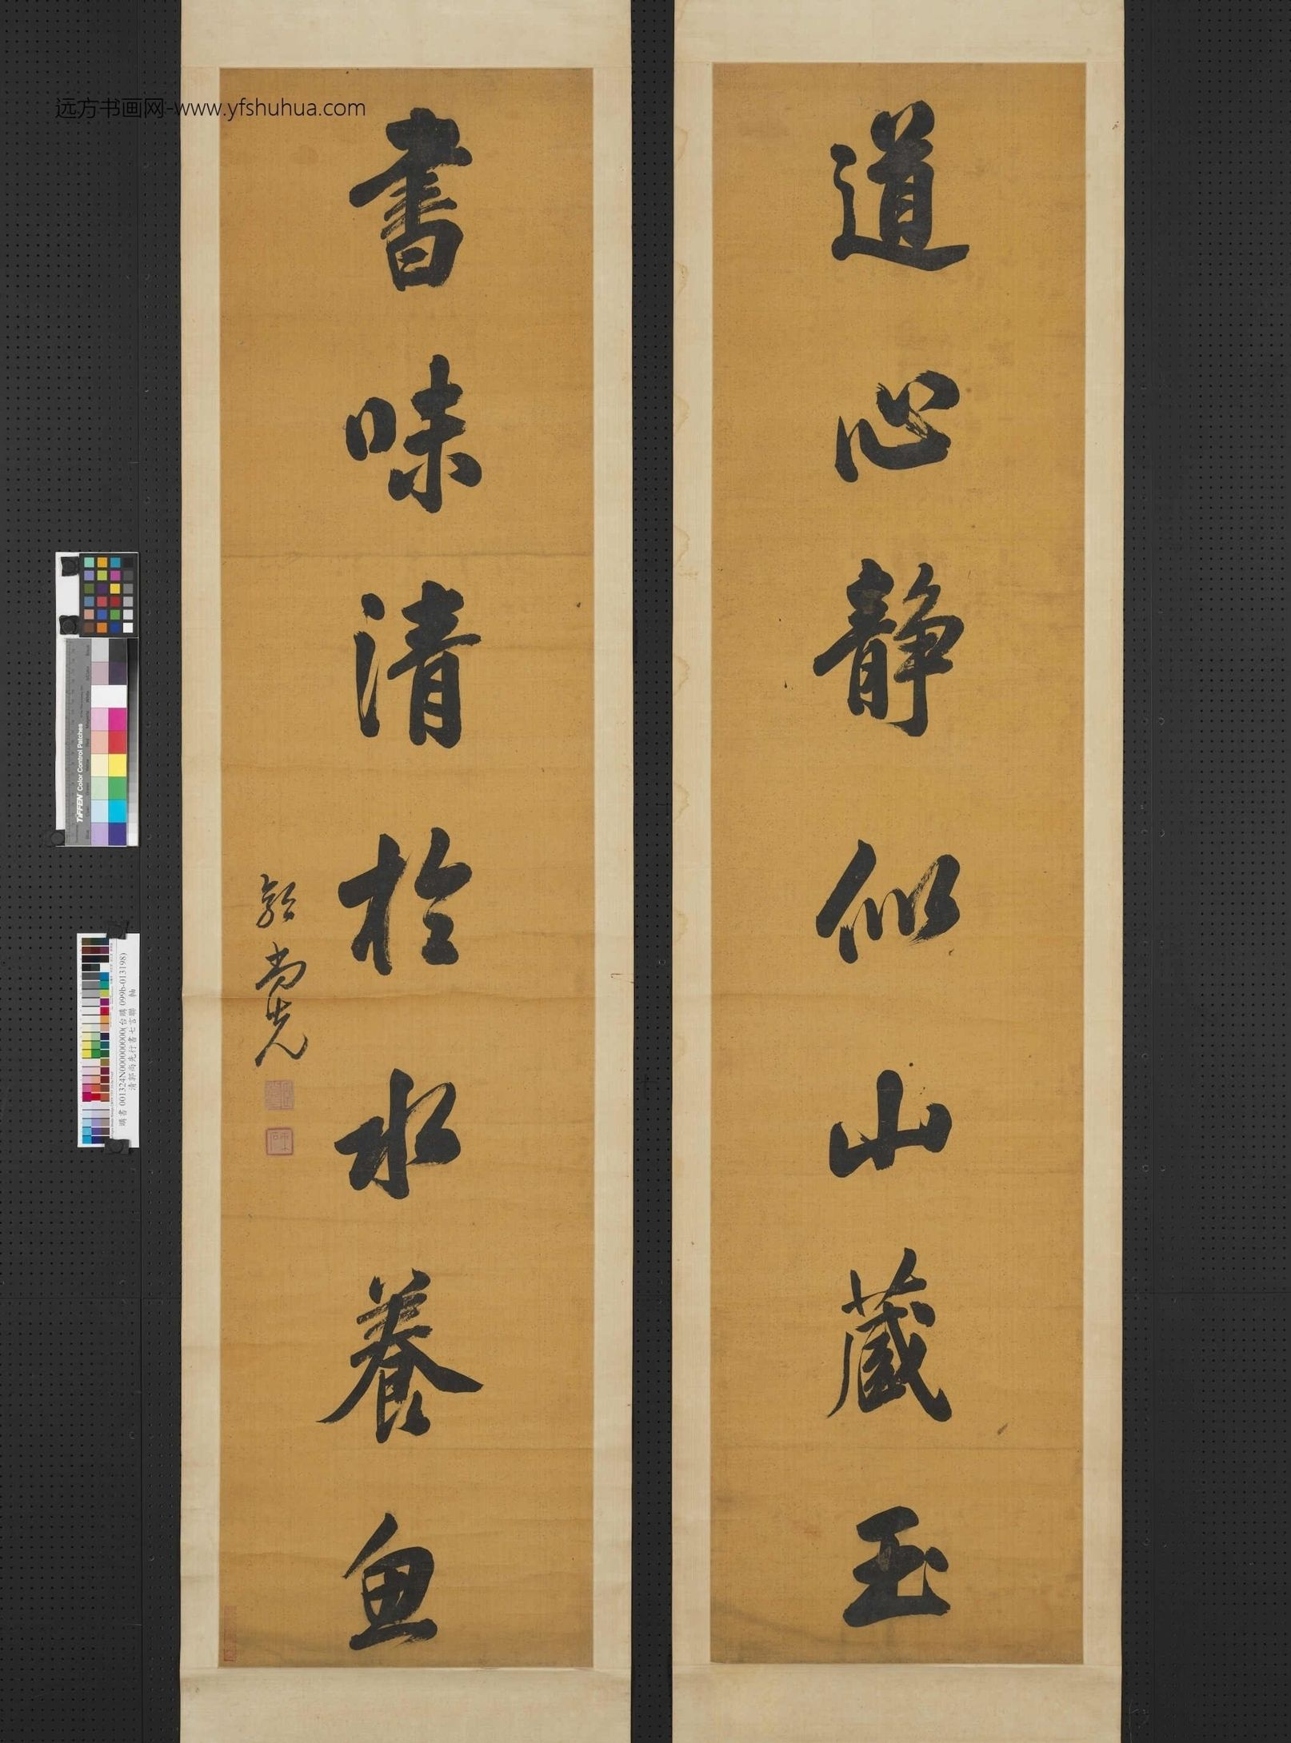 远方书画网-www.yfshuhua.com
道心靜似山藏玉
書味清於水養魚
郭尚先
TIFFEN Color Control Patches
購書 001324N000000000(台購 099b-013198)
清郭尚先行書七言聯 軸